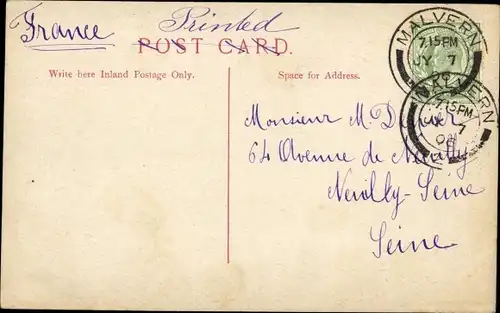 France
Printed
POST CARD.
Write here Inland Postage Only.
Space for Address.
MALVERN
7.15PM
JY 7
MALVERN
7.15PM
7
Monsieur M.
64 Avenue de Neuilly
Neuilly-Seine
Seine